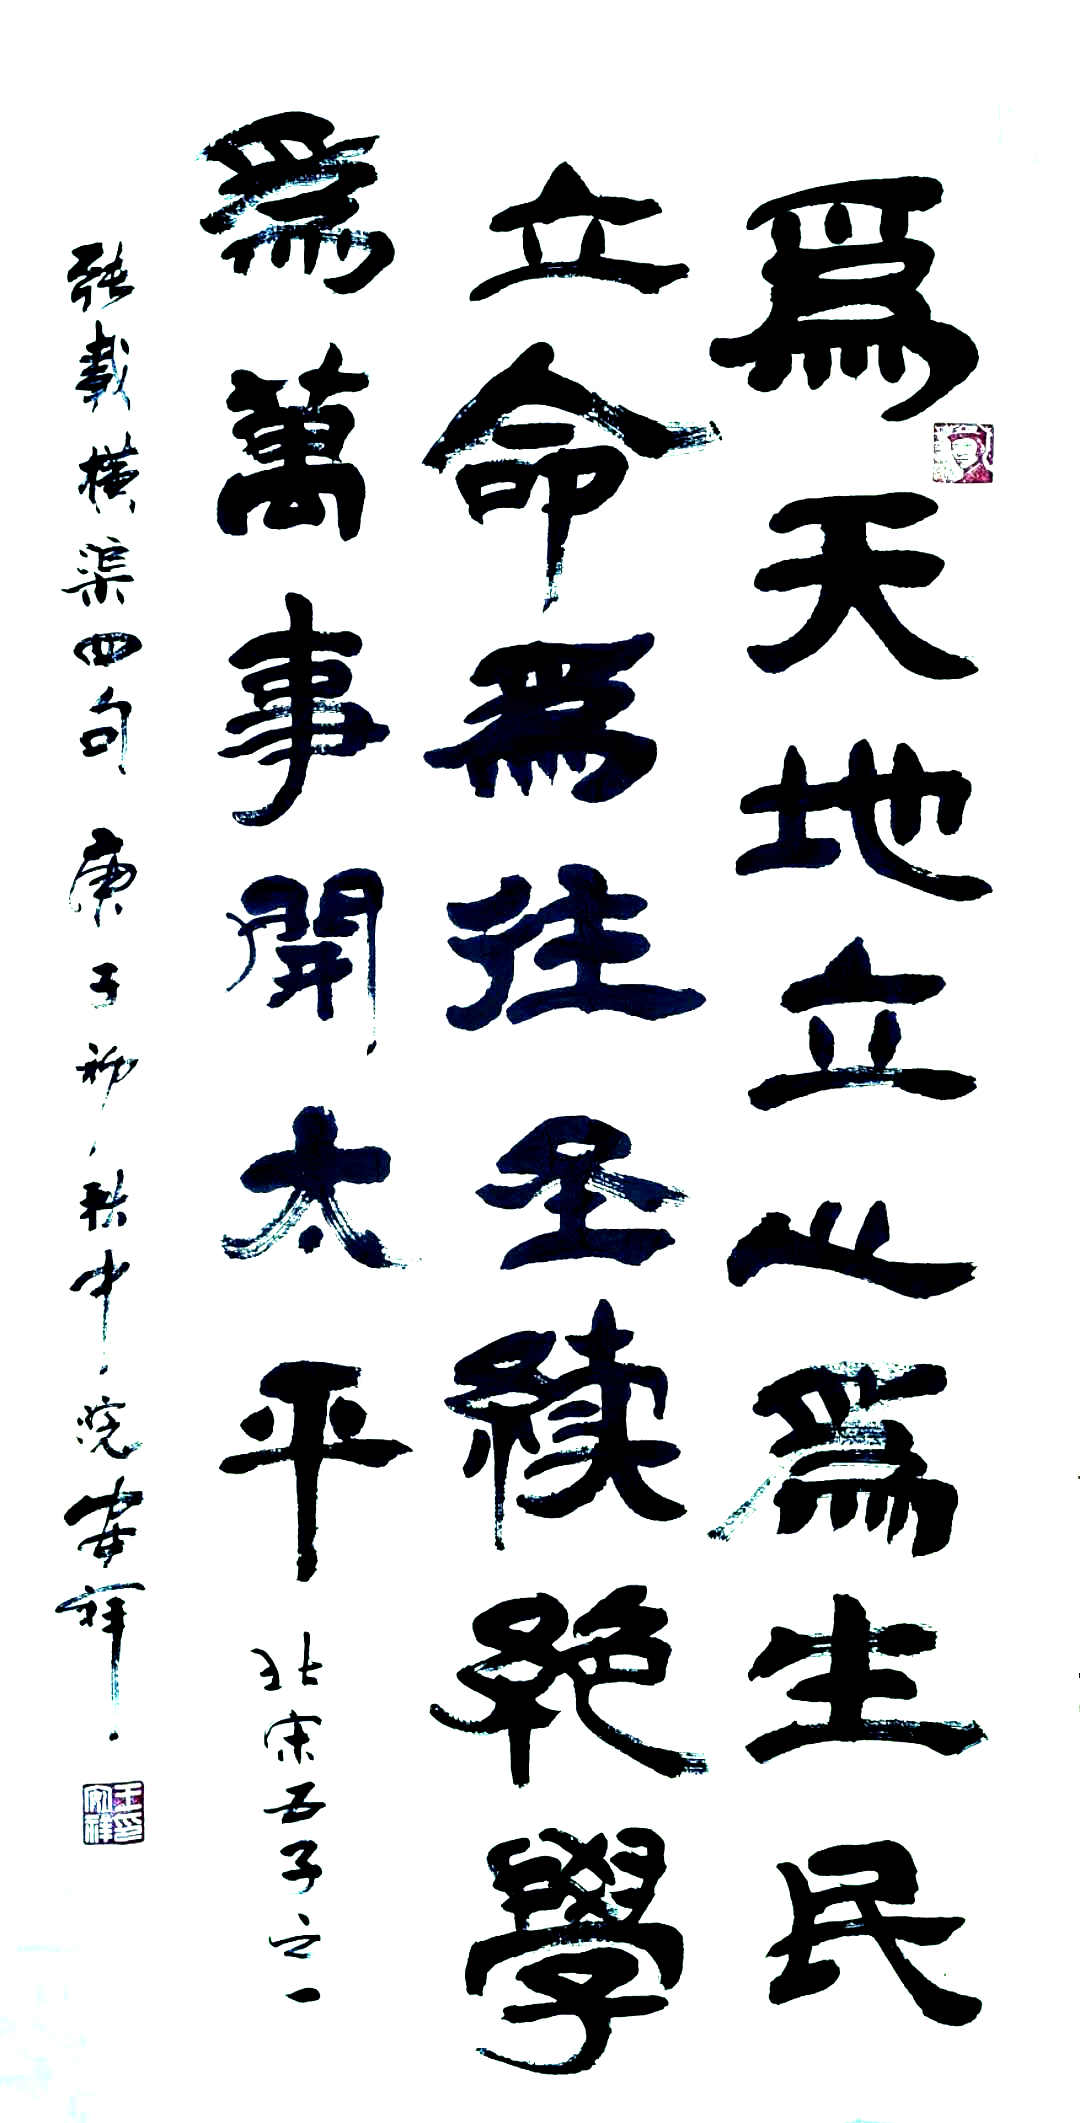 爲天地立心爲生民
立命爲往圣续絕學
爲萬事開太平
北宋五子之一
張載橫渠四句 庚子初秋中院家祥
王家祥印